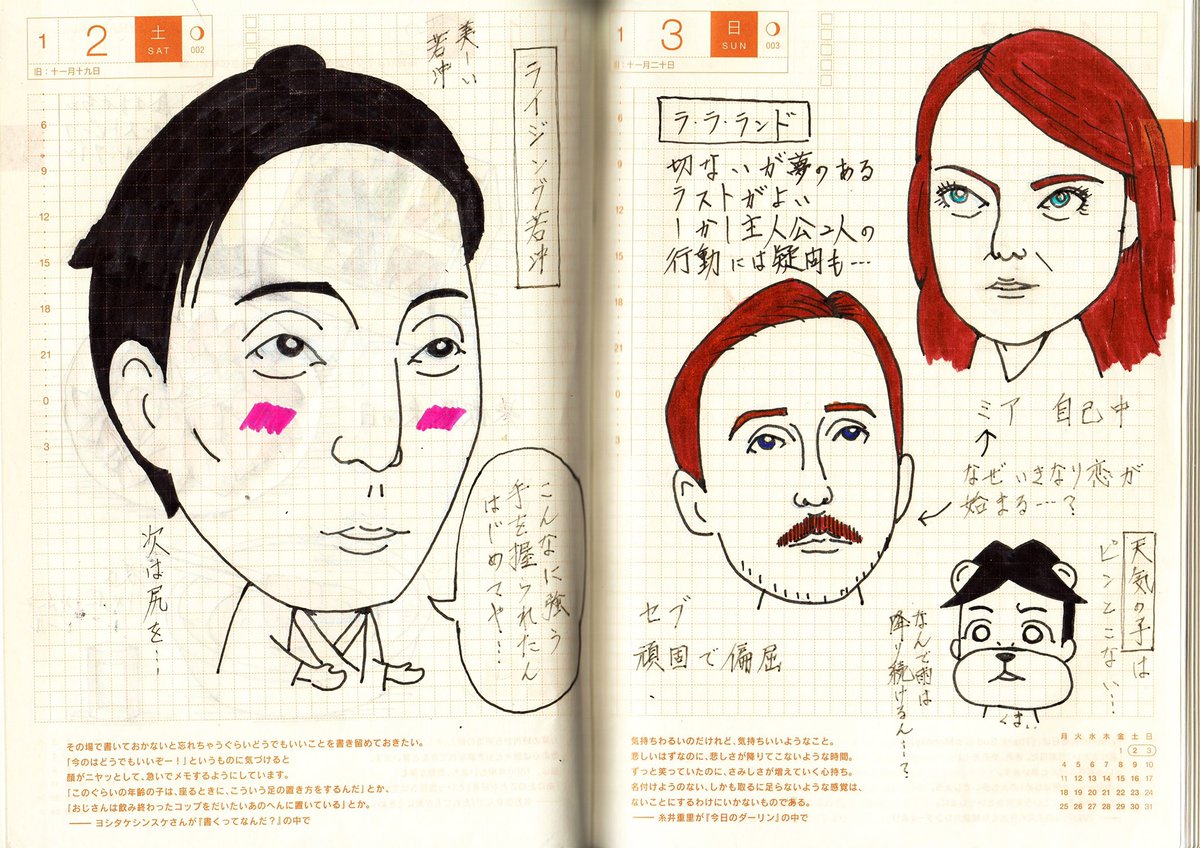 1 2 土 SAT 002
旧：十一月十九日
美しい
若冲
ライジング若冲
6
9
12
15
18
21
0
3
こんなに強う
手を握られたん
はじめてや…
次は尻を…
その場で書いておかないと忘れちゃうぐらいどうでもいいことを書き留めておきたい。
「今のはどうでもいいぞー！」というものに気づけると
顔がニヤッとして、急いでメモするようにしています。
「このぐらいの年齢の子は、座るときに、こういう足の置き方をするんだ」とか、
「おじさんは飲み終わったコップをだいたいあのへんに置いている」とか。
── ヨシタケシンスケさんが『書くってなんだ？』の中で
1 3 日 SUN 003
旧：十一月二十日
ラ・ラ・ランド
切ないが夢のある
ラストがよい
しかし主人公2人の
行動には疑問も…
6
9
12
15
18
21
0
3
ミア 自己中
↑
なぜいきなり恋が
始まる…？
←
セブ
頑固で偏屈
天気の子は
ピンとこない…
なんで雨は
降り続けるん…？
くまい
気持ちわるいのだけれど、気持ちいいようなこと。
悲しいはずなのに、悲しさが降りてこないような時間。
ずっと笑っていたのに、さみしさが増えていく心持ち。
名付けようのない、しかも取るに足らないような感覚は、
ないことにするわけにいかないものである。
── 糸井重里が『今日のダーリン』の中で
月 火 水 木 金 土 日
1 2 3
4 5 6 7 8 9 10
11 12 13 14 15 16 17
18 19 20 21 22 23 24
25 26 27 28 29 30 31